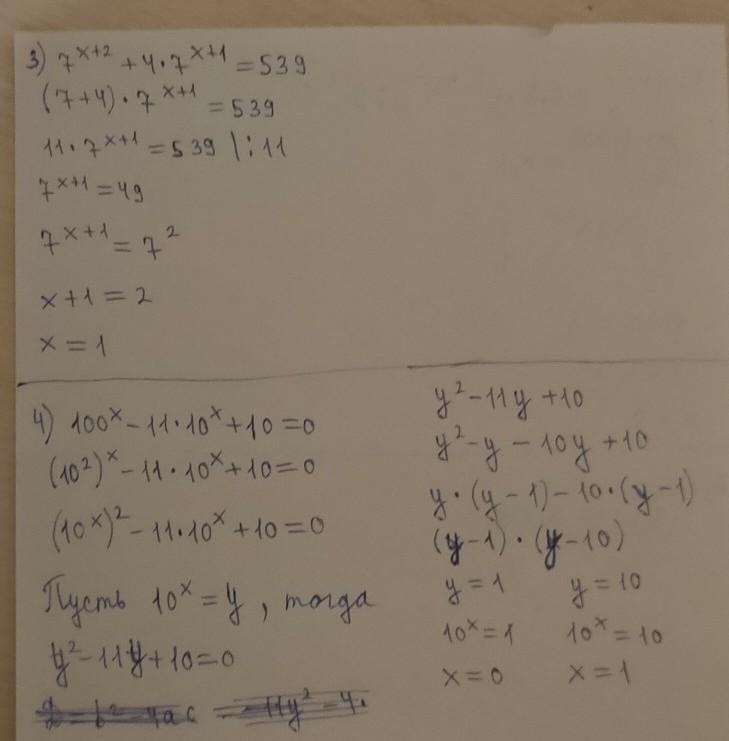 3) 7^(x+2) + 4·7^(x+1) = 539
(7+4)·7^(x+1) = 539
11·7^(x+1) = 539 |:11
7^(x+1) = 49
7^(x+1) = 7^2
x+1 = 2
x = 1
4) 100^x - 11·10^x + 10 = 0
(10^2)^x - 11·10^x + 10 = 0
(10^x)^2 - 11·10^x + 10 = 0
Пусть 10^x = y, тогда
y^2 - 11y + 10 = 0
D = b^2 - 4ac = -11y^2 - 4·
y^2 - 11y + 10
y^2 - y - 10y + 10
y·(y-1) - 10·(y-1)
(y-1)·(y-10)
y = 1 y = 10
10^x = 1 10^x = 10
x = 0 x = 1